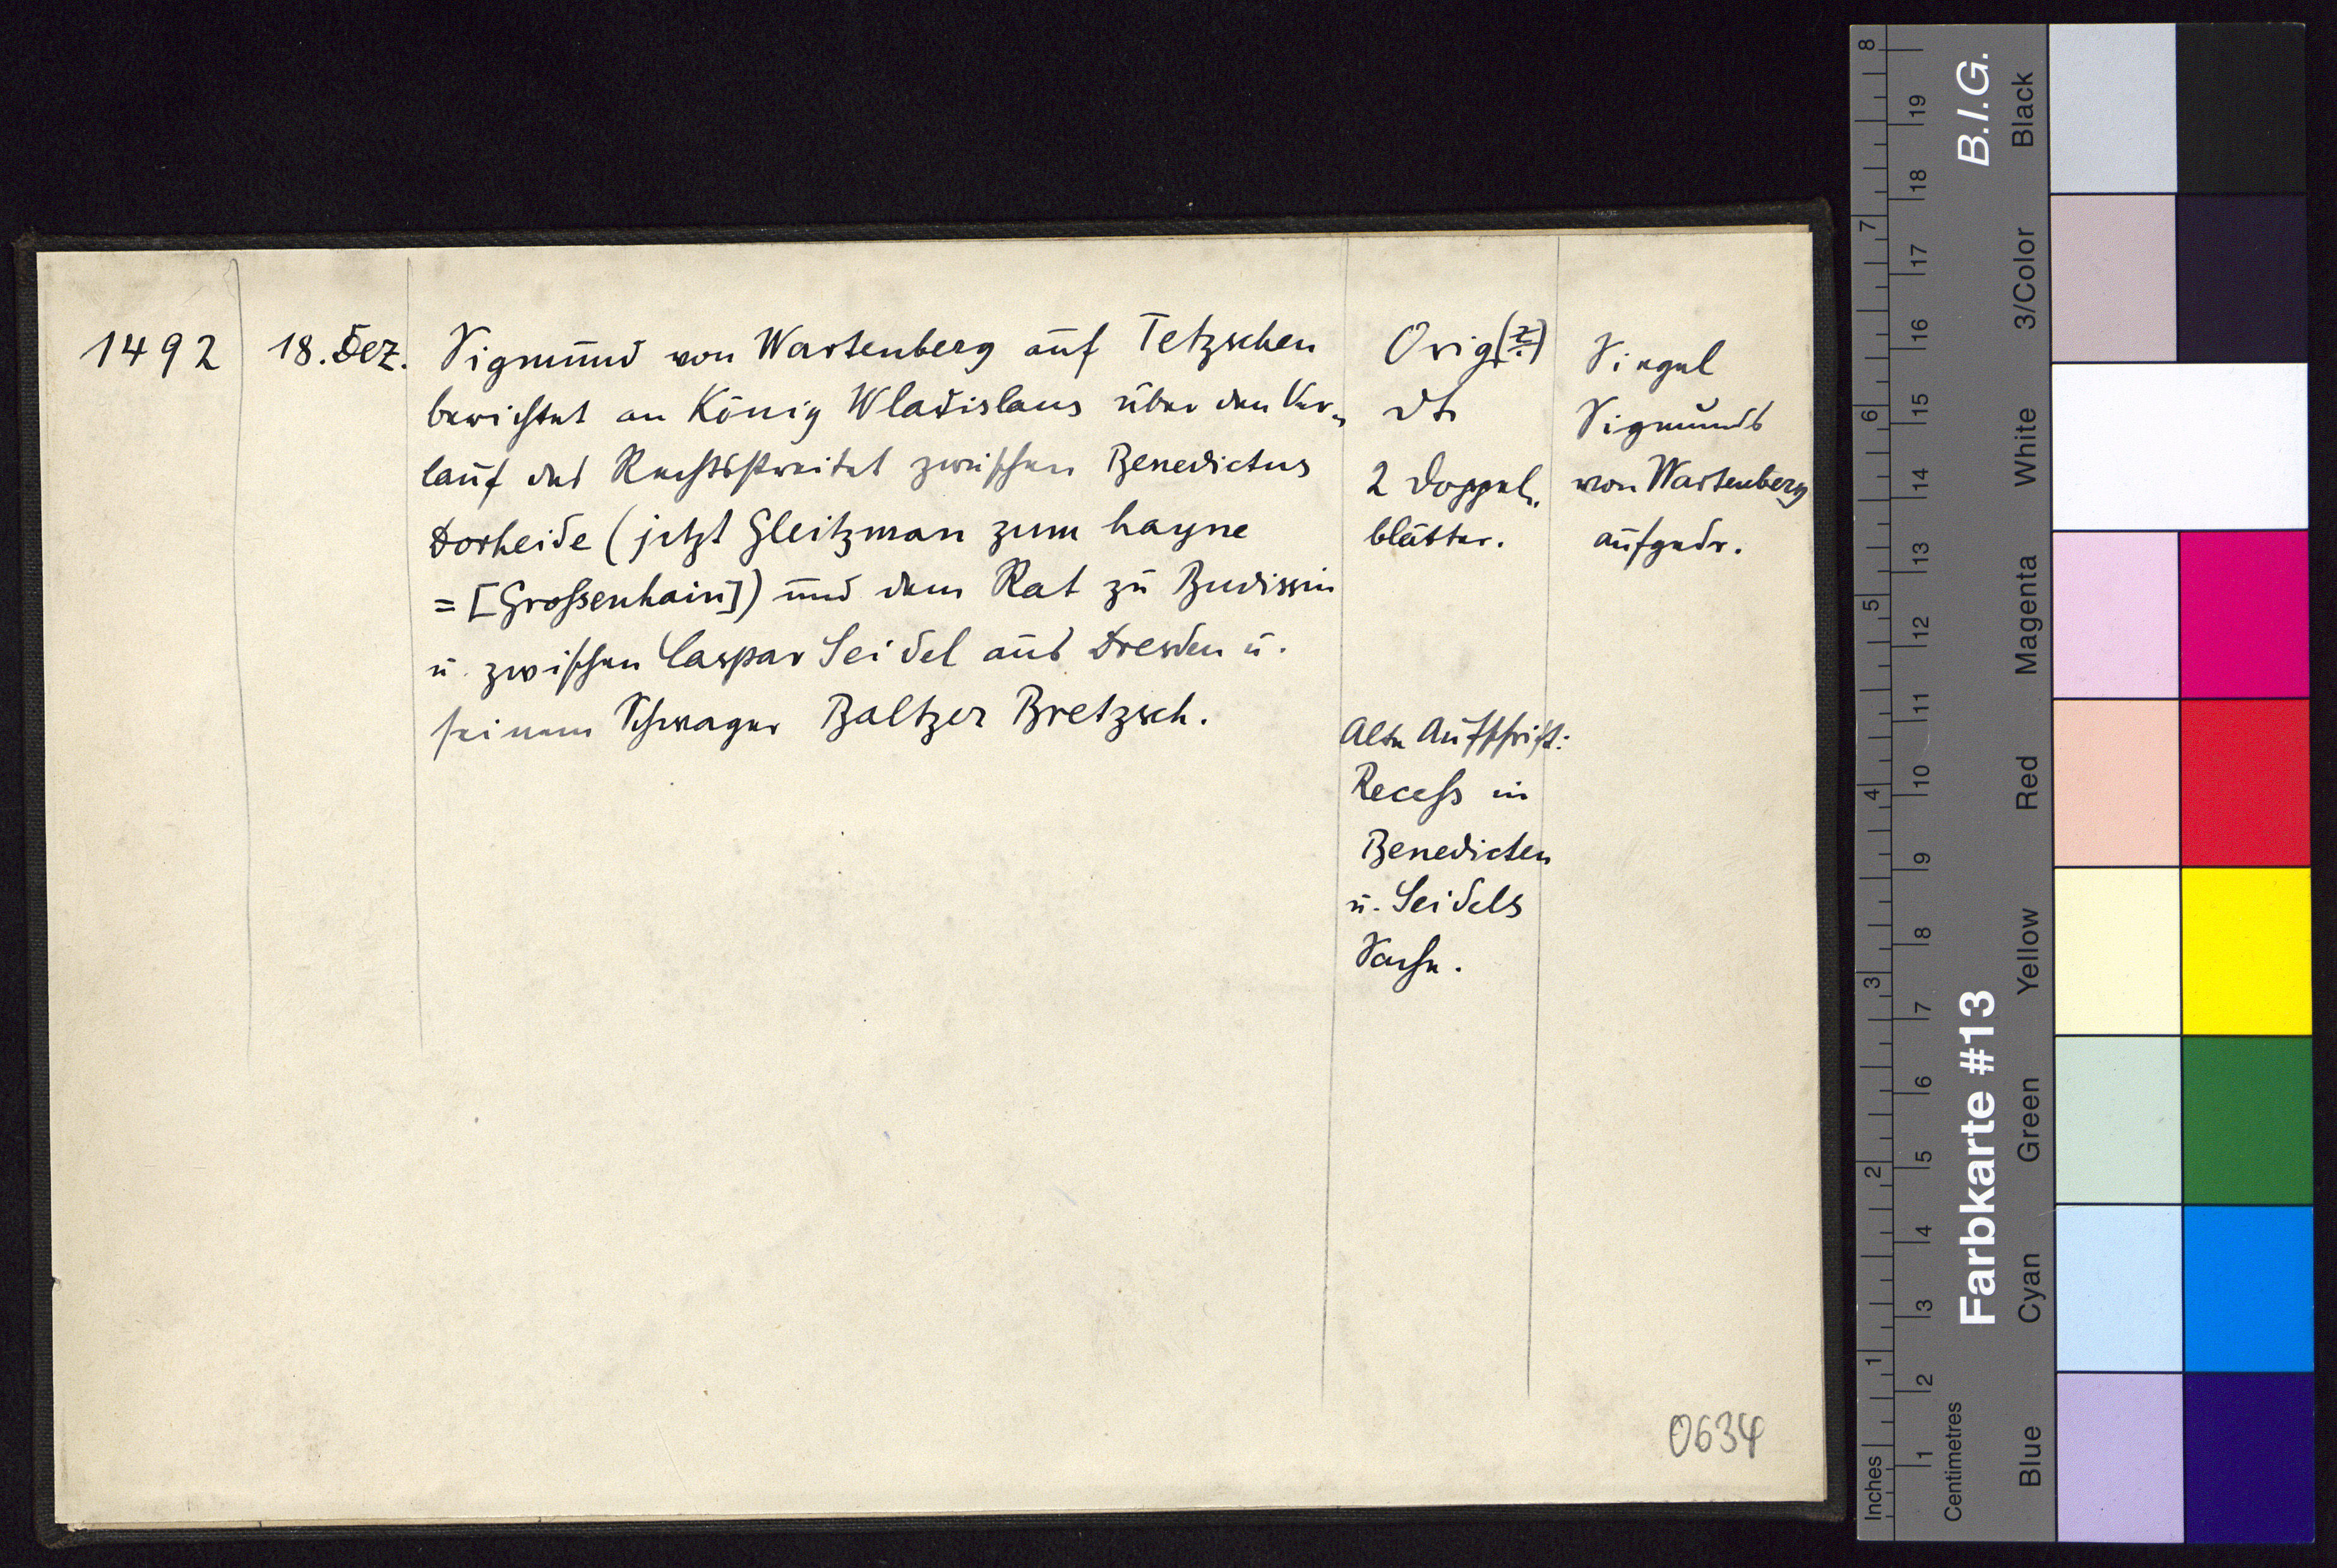 1492
18. Dez.
Sigmund von Wartenberg auf Tetzschen
berichtet an König Wladislaus über den Ver-
lauf des Rechtsstreites zwischen Benedictus
Dorheide (jetzt Gleitzman zum hayne
= [Großenhain]) und dem Rat zu Budissin
u. zwischen Caspar Seidel aus Dresden u.
seinem Schwager Baltzer Bretzsch.
Orig(?)
dt.
2 Doppel-
blätter.
Alte Aufschrift:
Recess in
Benedicten
u. Seidels
Sache.
Siegel
Sigmunds
von Wartenberg
aufgedr.
0634
B.I.G.
Farbkarte #13
Inches
1 2 3 4 5 6 7 8
Centimetres
1 2 3 4 5 6 7 8 9 10 11 12 13 14 15 16 17 18 19
Blue
Cyan
Green
Yellow
Red
Magenta
White
3/Color
Black